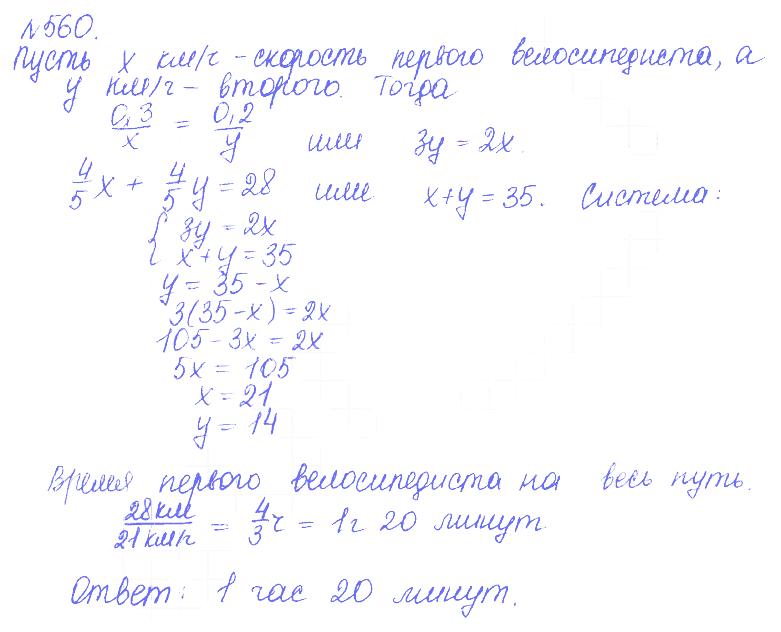 №560.
Пусть x км/ч - скорость первого велосипедиста, а
y км/ч - второго. Тогда
0,3/x = 0,2/y или 3y = 2x.
4/5 x + 4/5 y = 28 или x+y = 35. Система:
{ 3y = 2x
x+y = 35
y = 35 - x
3(35-x) = 2x
105 - 3x = 2x
5x = 105
x = 21
y = 14
Время первого велосипедиста на весь путь.
28км/21км/ч = 4/3 ч = 1ч 20 минут
Ответ: 1 час 20 минут.